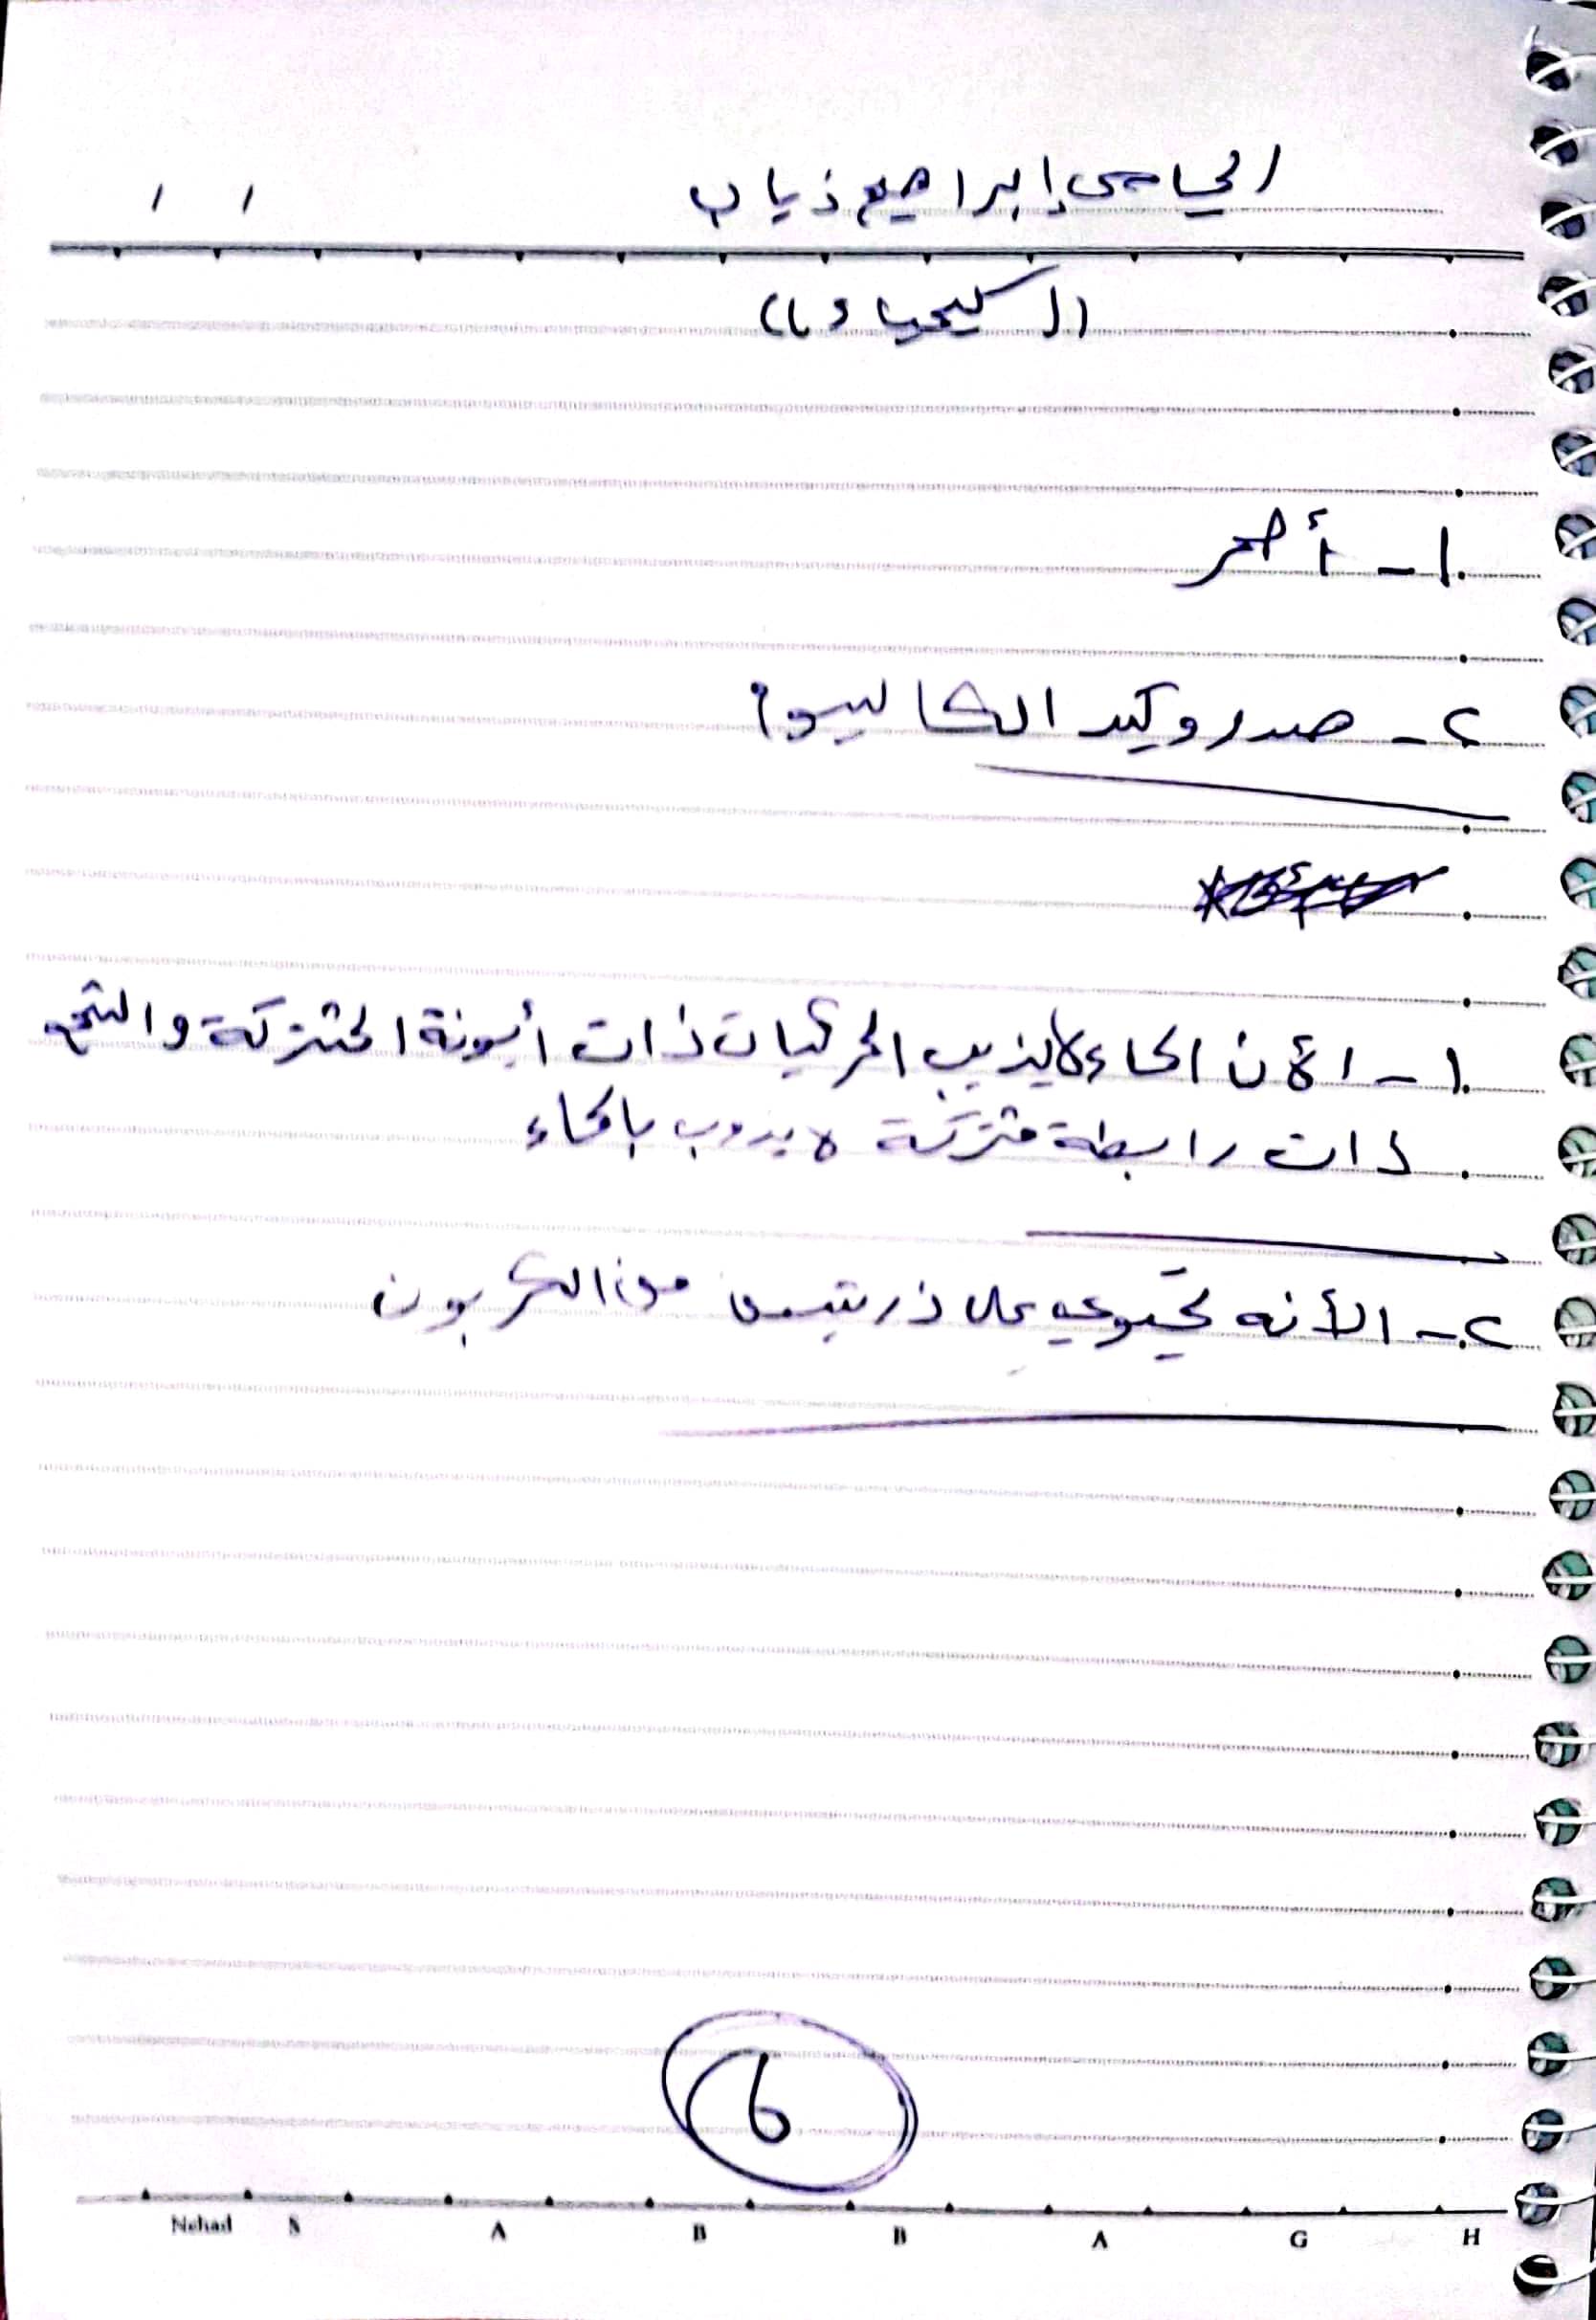 إبراهيم ذياب
((الكيمياء))
١ - أحمر
٢ - هيدروكيد الكاليوم
١ - الأن الماء لا يذيب المركبات ذات أيونة المشتركة والشمع
ذات رابطة مشتركة لا يذوب بالماء
٢ - الأنه يحتوي على ذرتين من الكربون
6
Nehad S A B B A G H